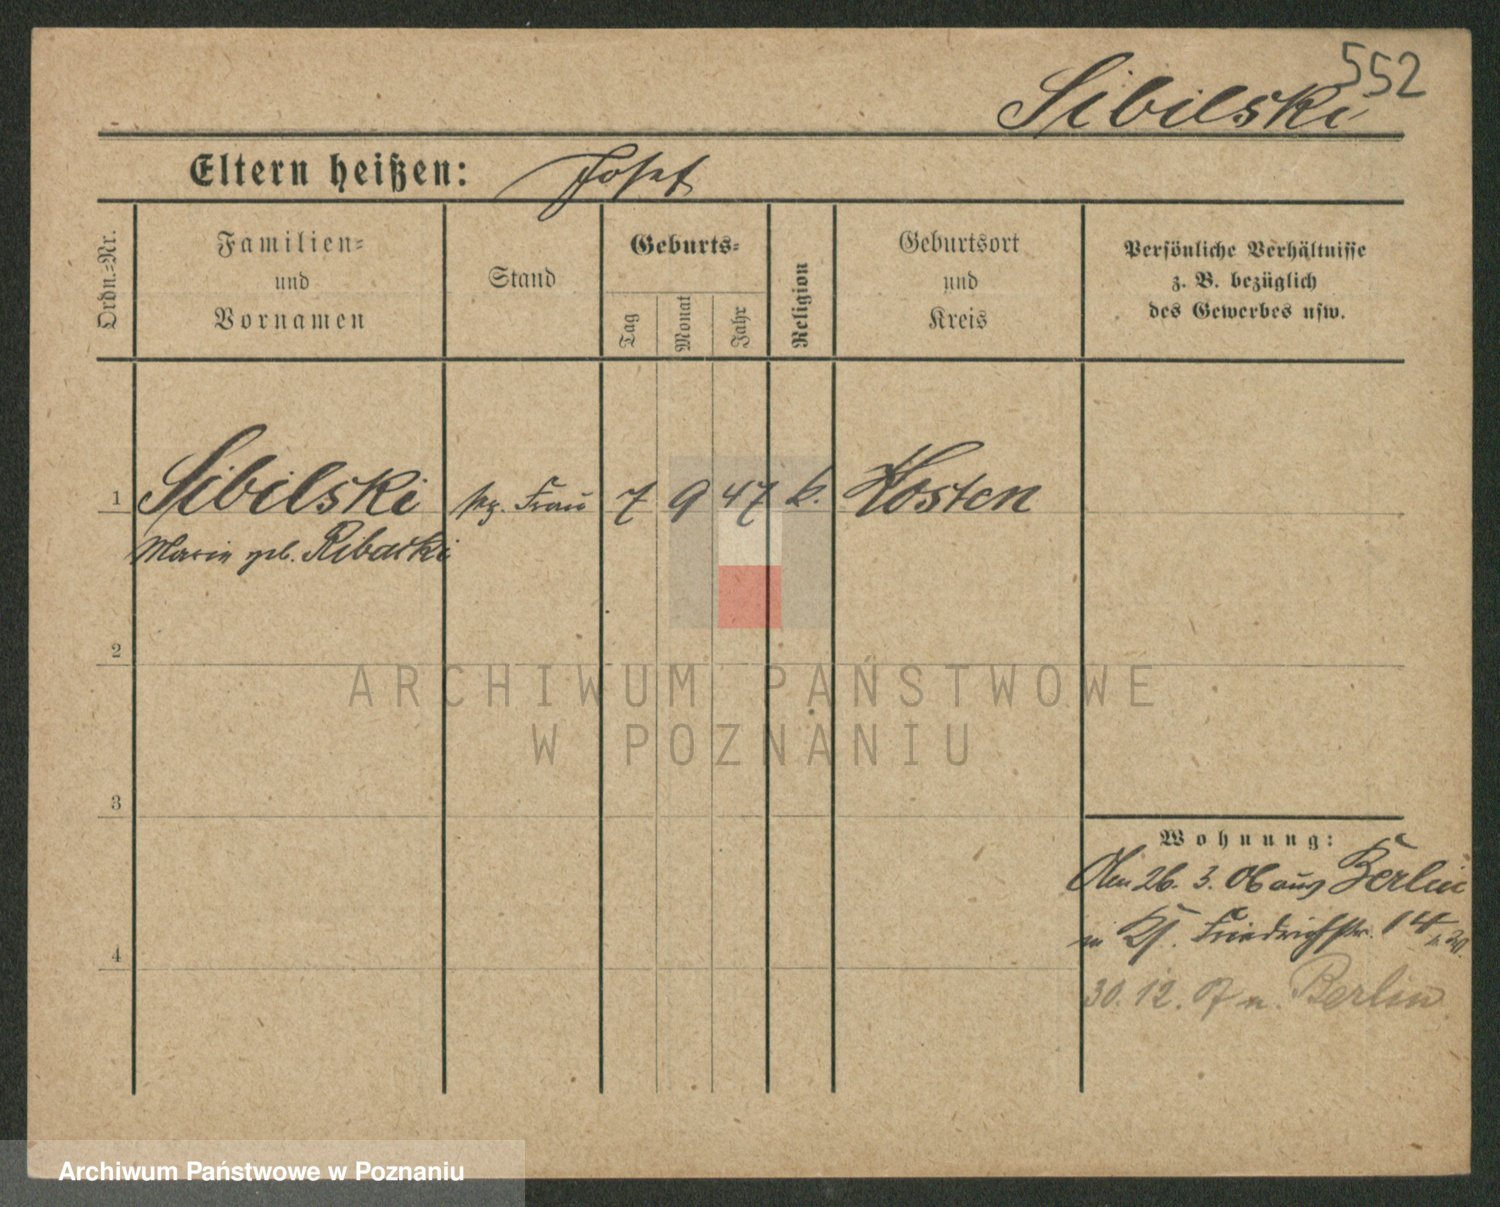 552
Sibilski
Eltern heißen: Josef
Ordn.=Nr.
Familien=
und
Vornamen
Stand
Geburts=
Tag
Monat
Jahr
Religion
Geburtsort
und
Kreis
Persönliche Verhältnisse
z. B. bezüglich
des Gewerbes usw.
1 Sibilski Frau 7 9 47 k. Kosten
Marie geb. Ribacki
2
ARCHIWUM PAŃSTWOWE
W POZNANIU
3
Wohnung:
Am 26. 3. 06 aus Berlin
n Friedrichstr. 14
4
30. 12. 07 n. Berlin
Archiwum Państwowe w Poznaniu